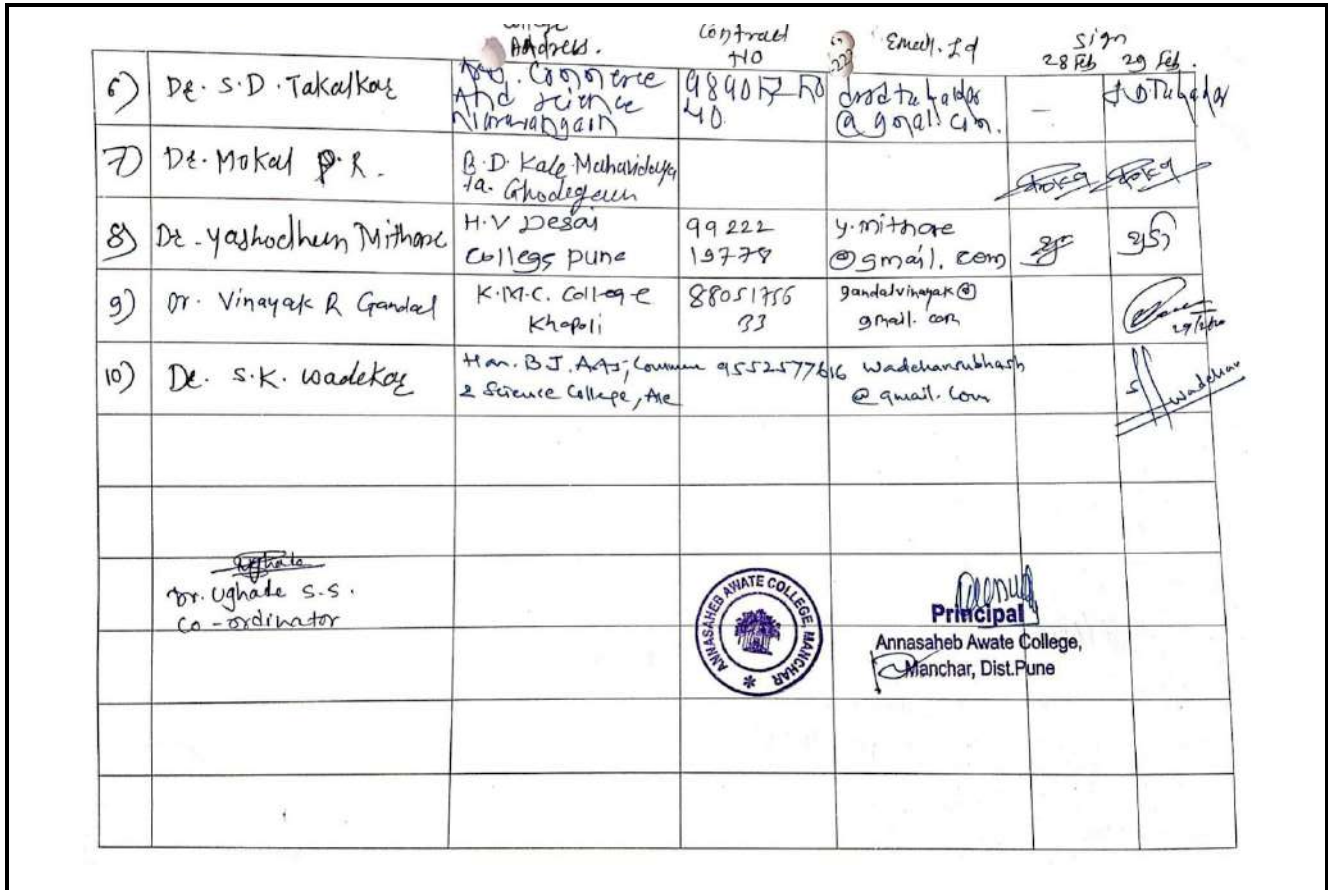 College
Address.
Contract
No
Email. Id
Sign
28 Feb 29 Feb.
6) Dr. S.D. Takalkar
Arts. Commerce
And Science
Narayangaon
98901
40
@gmail.com.
-
7) Dr. Mokal P.R.
B.D. Kale Mahavidalya
ya. Ghodegaun
8) Dr. Yashodhun Mithare
H.V Desai
College pune
99222
19778
y.mithare
@gmail.com
9) Dr. Vinayak R Gandal
K.M.C. College
Khopoli
88051756
33
gandalvinayak@
gmail.com
29/2/20
10) Dr. S.K. Wadekar
Hon. B J. Arts, Comm
& Science College, Ale
9552577616
@gmail.com
Wadekar
Ughade
Dr. Ughade S.S.
Co-ordinator
ANNASAHEB AWATE COLLEGE, MANCHAR
*
Principal
Annasaheb Awate College,
Manchar, Dist.Pune